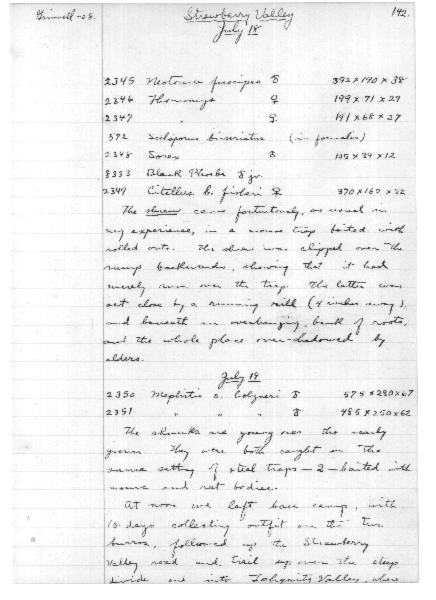 Grinnell - 08.
Strawberry Valley
142.
July 18
2345 Neotoma fuscipes ♂ 392 x 190 x 38
2346 Thomomys ♀ 199 x 71 x 27
2347 " ♀ 191 x 68 x 27
572 Sceloporus biseriatus (in formalin)
2348 Sorex ♂ 105 x 39 x 12
8353 Black Phoebe ♂ jv.
2349 Citellus b. fisheri ♀ 370 x 162 x 52
The shrew came fortuitously, as usual in
my experience, in a mouse trap baited with
rolled oats. The shrew was clipped over the
rump backwards, showing that it had
merely run over the trap. The latter was
set close by a running rill (4 inches away),
and beneath an overhanging bank of roots,
and the whole place over-shadowed by
alders.
July 19
2350 Mephitis o. holzneri ♂ 575 x 280 x 67
2351 " " " ♂ 485 x 250 x 62
The skunks are young ones tho nearly
grown. They were both caught in the
same setting of steel traps — 2 — baited with
mouse and rat bodies.
At noon we left base camp, with
10-days collecting outfit on the two
burros, followed up the Strawberry
Valley road and trail up over the steep
divide and into Tahquitz Valley, where